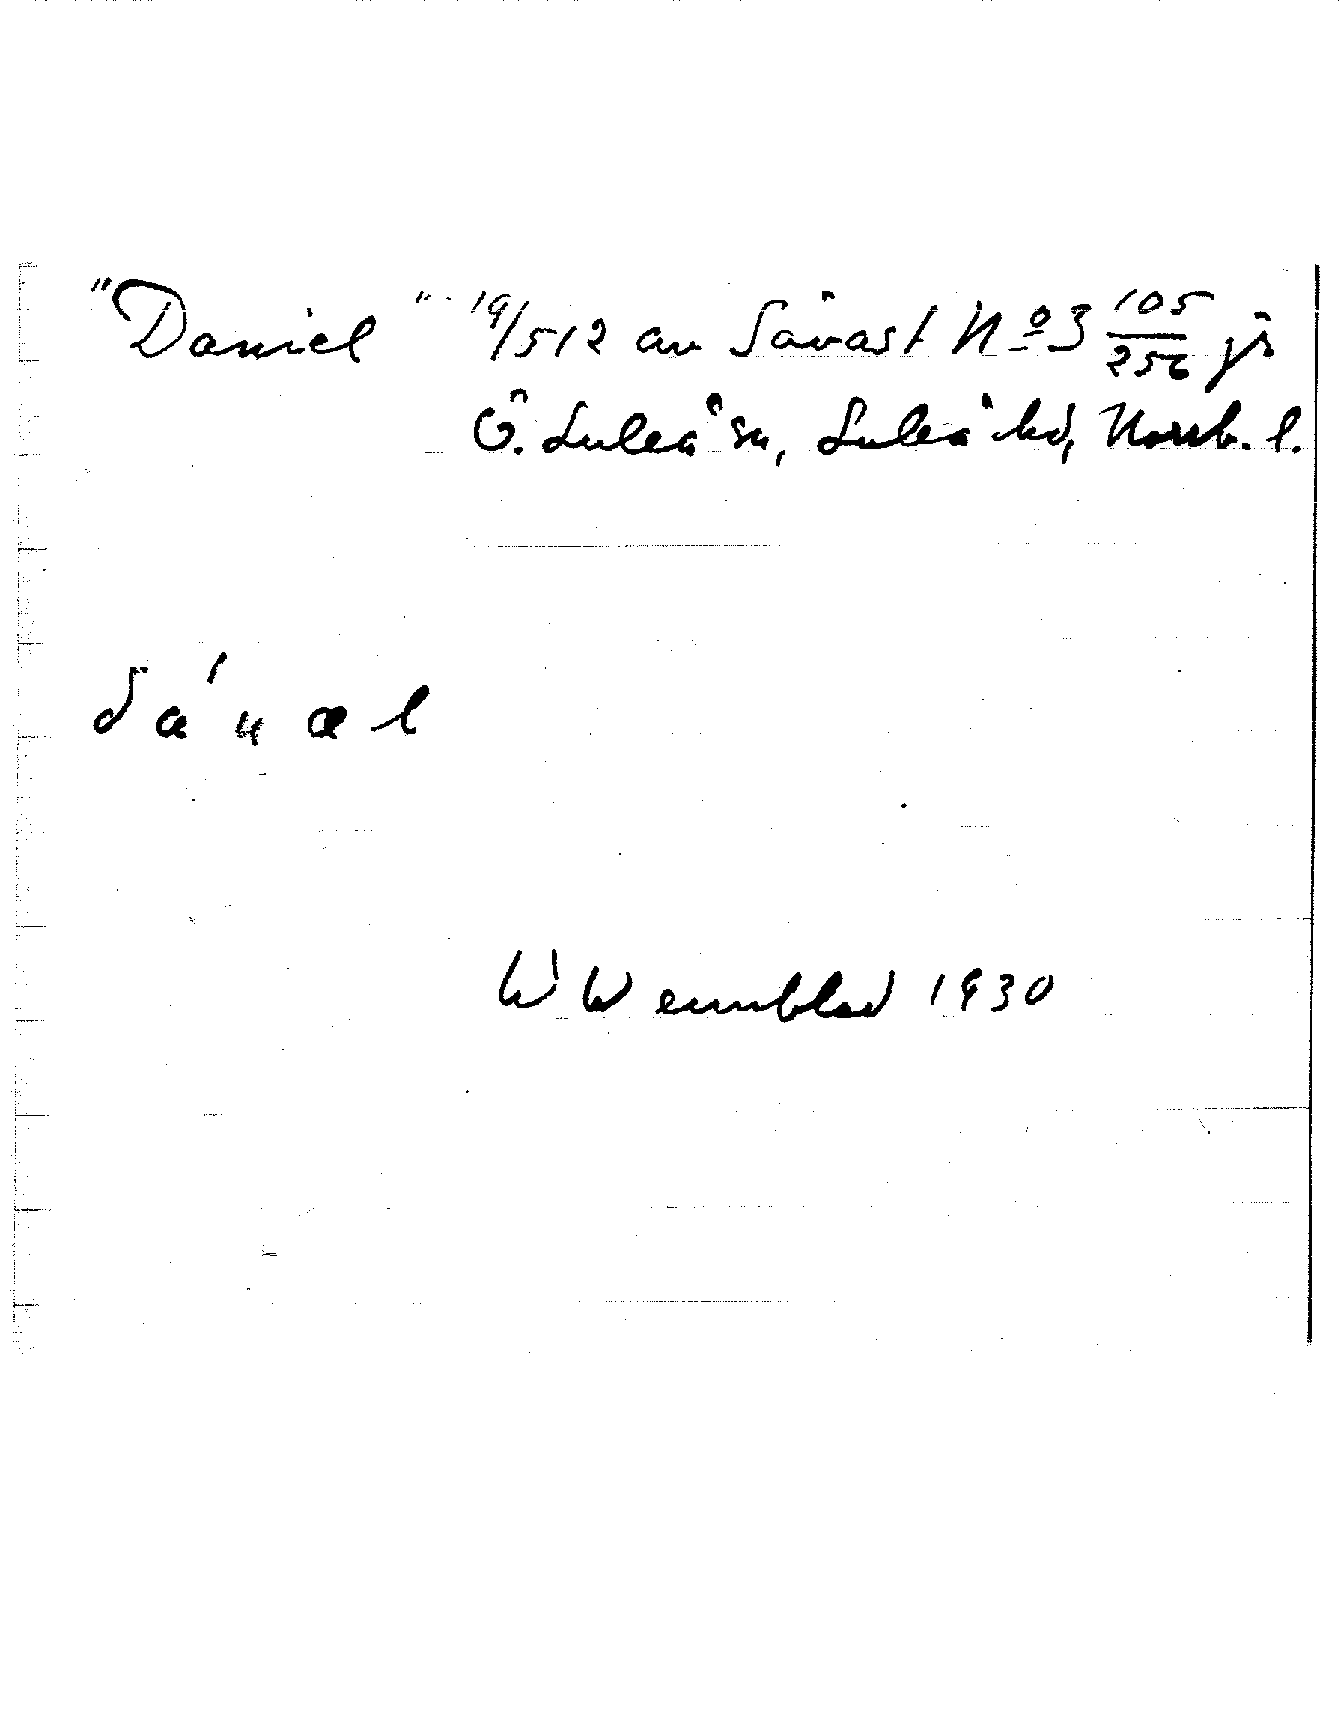 "Daniel" 19/512 av Sävast No 3 105/256 jr
Ö. Luleå sn, Luleå hd, Norrb. l.
da'næl
W Wennblad 1930